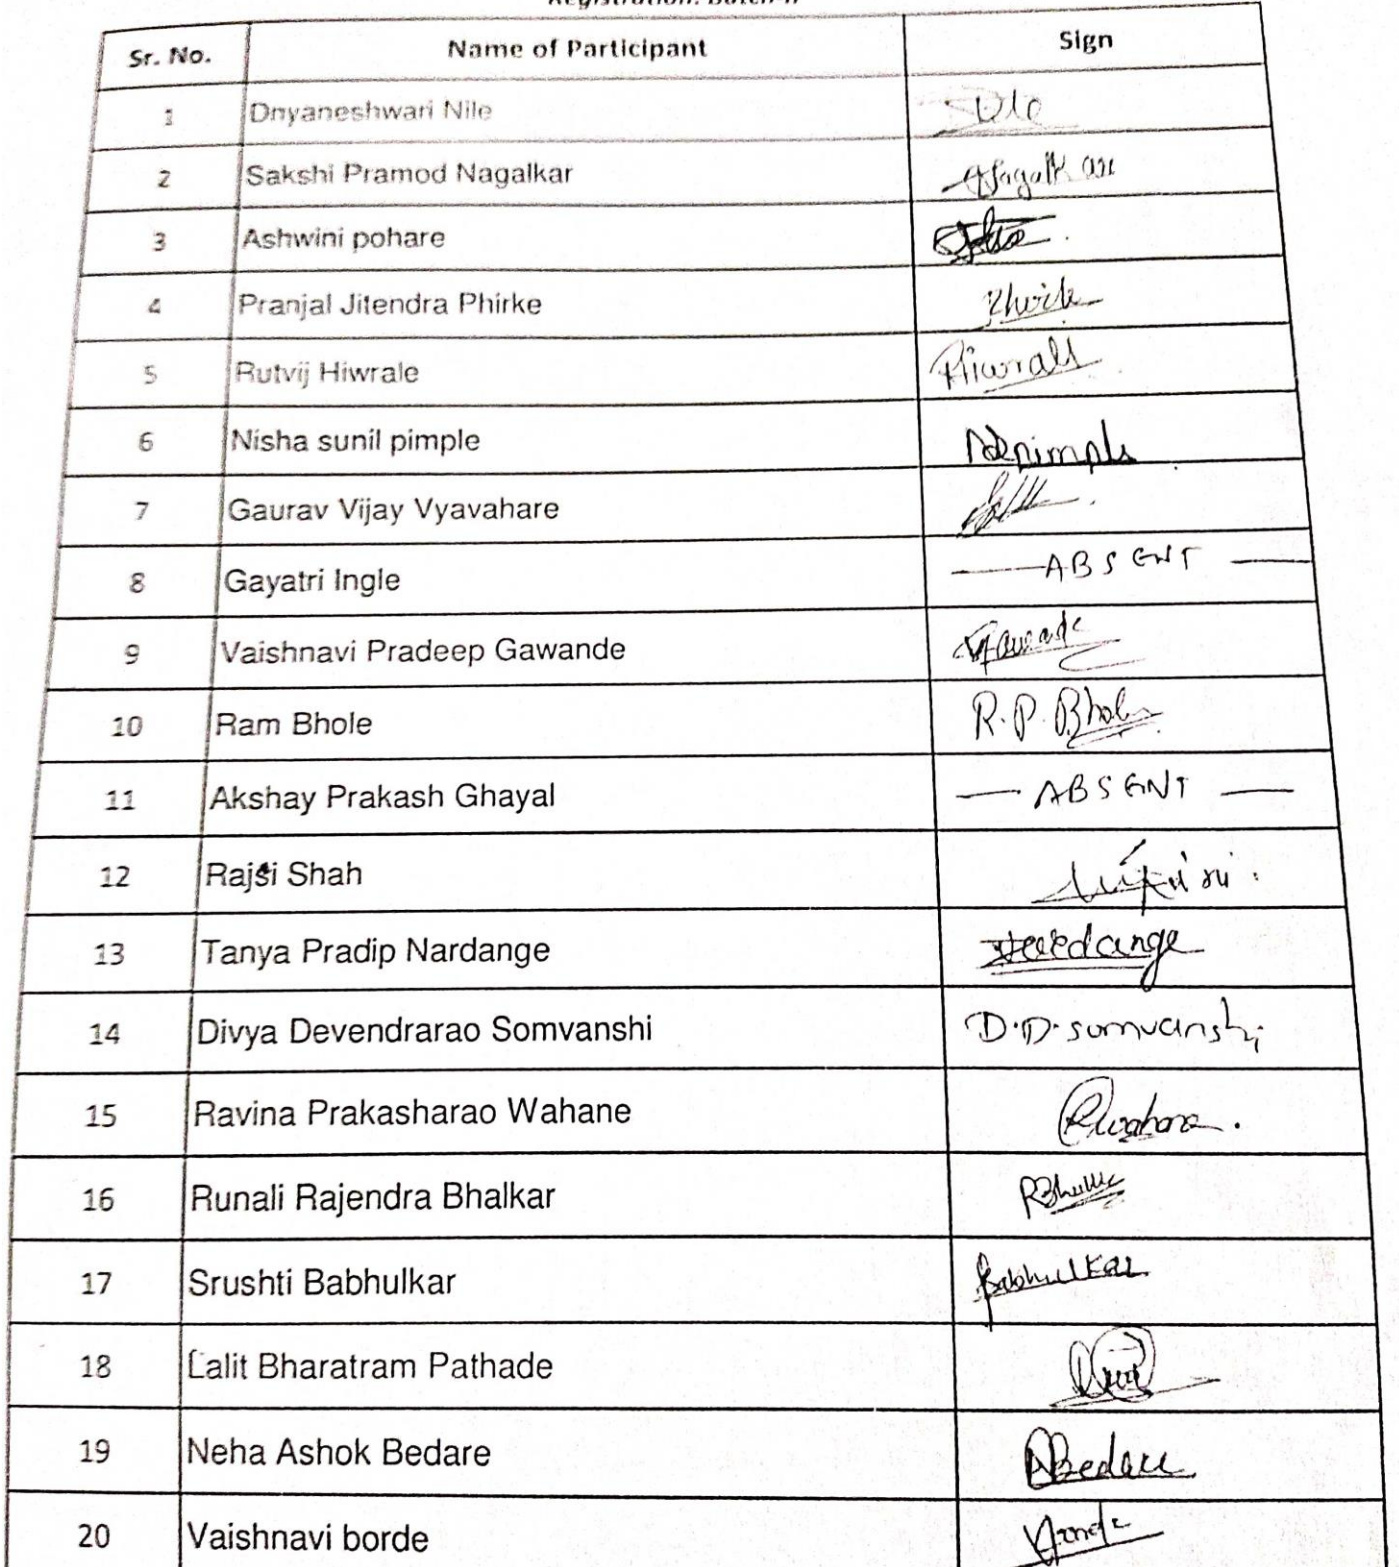 Sr. No. Name of Participant Sign
1 Dnyaneshwari Nile
2 Sakshi Pramod Nagalkar
3 Ashwini pohare
4 Pranjal Jitendra Phirke
5 Rutvij Hiwrale Hiwrale
6 Nisha sunil pimple
7 Gaurav Vijay Vyavahare
8 Gayatri Ingle — ABSENT —
9 Vaishnavi Pradeep Gawande
10 Ram Bhole R.P. Bhole
11 Akshay Prakash Ghayal — ABSENT —
12 Rajsi Shah
13 Tanya Pradip Nardange
14 Divya Devendrarao Somvanshi D.D. somvanshi
15 Ravina Prakasharao Wahane
16 Runali Rajendra Bhalkar
17 Srushti Babhulkar Babhulkar
18 Lalit Bharatram Pathade
19 Neha Ashok Bedare
20 Vaishnavi borde